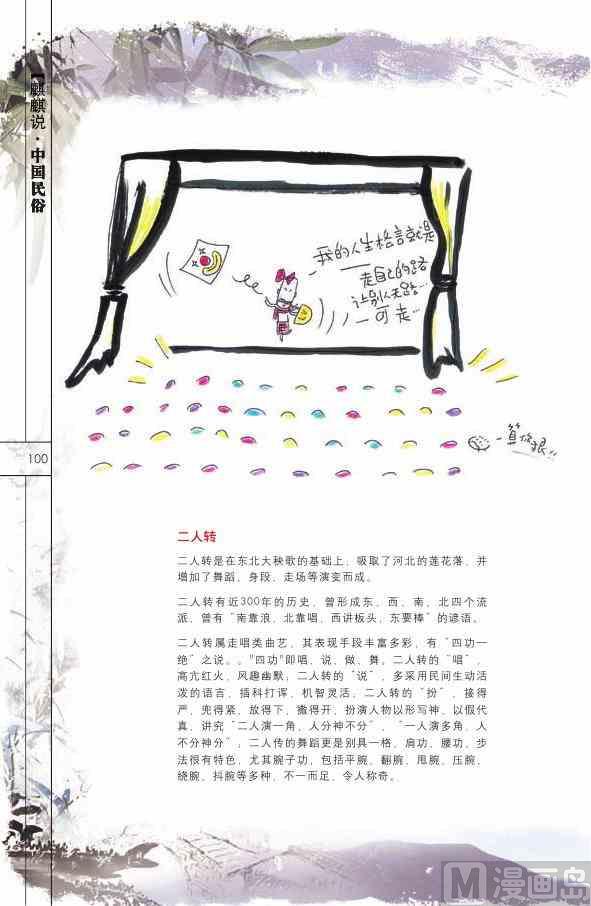 麒麒说·中国民俗
我的人生格言就是
走自己的路
让别人无路…
可走…
算你狠!!
100
二人转
二人转是在东北大秧歌的基础上，吸取了河北的莲花落，并
增加了舞蹈、身段、走场等演变而成。
二人转有近300年的历史，曾形成东、西、南、北四个流
派，曾有“南靠浪、北靠唱、西讲板头、东要棒”的谚语。
二人转属走唱类曲艺，其表现手段丰富多彩，有“四功一
绝”之说。。“四功”即唱、说、做、舞。二人转的“唱”，
高亢红火，风趣幽默；二人转的“说”，多采用民间生动活
泼的语言，插科打诨，机智灵活，二人转的“扮”，接得
严，兜得紧，放得下，撒得开；扮演人物以形写神，以假代
真，讲究“二人演一角，人分神不分”，“一人演多角，人
不分神分”，二人传的舞蹈更是别具一格，肩功、腰功、步
法很有特色，尤其腕子功，包括平腕、翻腕、甩腕、压腕、
绕腕、抖腕等多种，不一而足，令人称奇。
M漫画岛